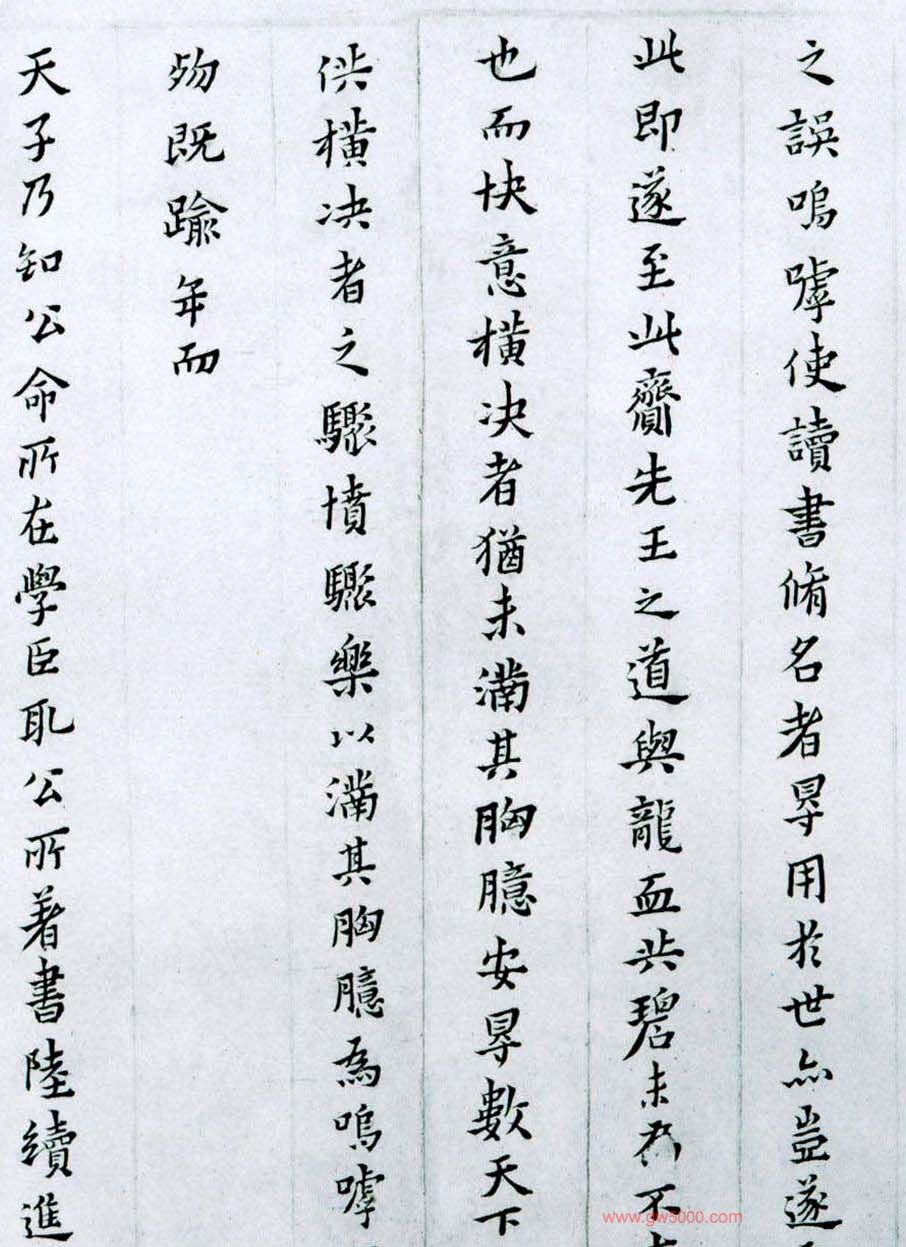 之誤嗚嘑使讀書脩名者㝵用於世亦豈遂
此即遂至此齎先王之道與龍血共碧未為不
也而快意橫决者猶未滿其胸臆安㝵數天下
供橫决者之驟憤驟樂以滿其胸臆為嗚嘑
歾既踰年而
天子乃知公命所在學臣取公所著書陸續進
www.gw5000.com